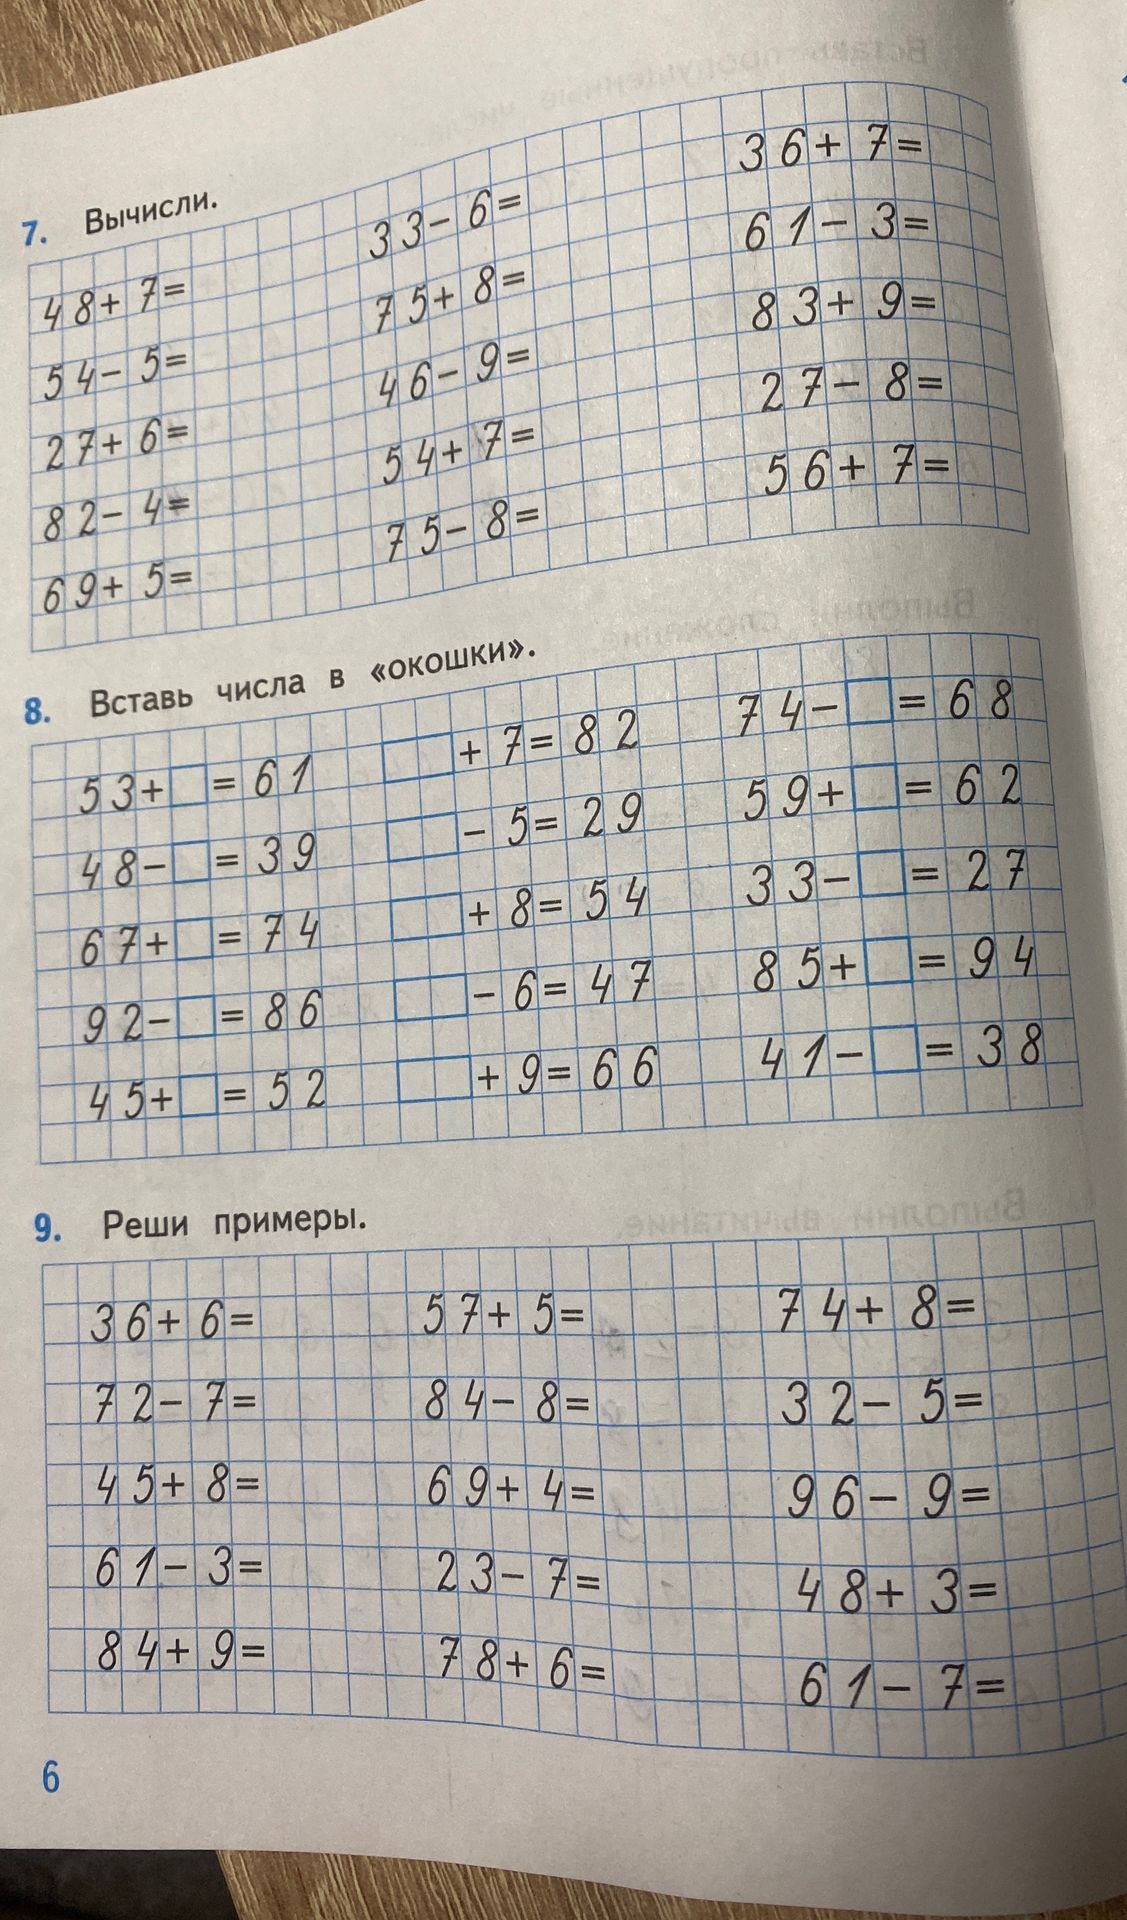 7. Вычисли.
48+ 7= 33- 6= 36+ 7=
54- 5= 75+ 8= 61- 3=
27+ 6= 46- 9= 83+ 9=
82- 4= 54+ 7= 27- 8=
69+ 5= 75- 8= 56+ 7=
8. Вставь числа в «окошки».
53+□= 61 □+ 7= 82 74-□= 68
48-□= 39 □- 5= 29 59+□= 62
67+□= 74 □+ 8= 54 33-□= 27
92-□= 86 □- 6= 47 85+□= 94
45+□= 52 □+ 9= 66 41-□= 38
9. Реши примеры.
36+ 6= 57+ 5= 74+ 8=
72- 7= 84- 8= 32- 5=
45+ 8= 69+ 4= 96- 9=
61- 3= 23- 7= 48+ 3=
84+ 9= 78+ 6= 61- 7=
6